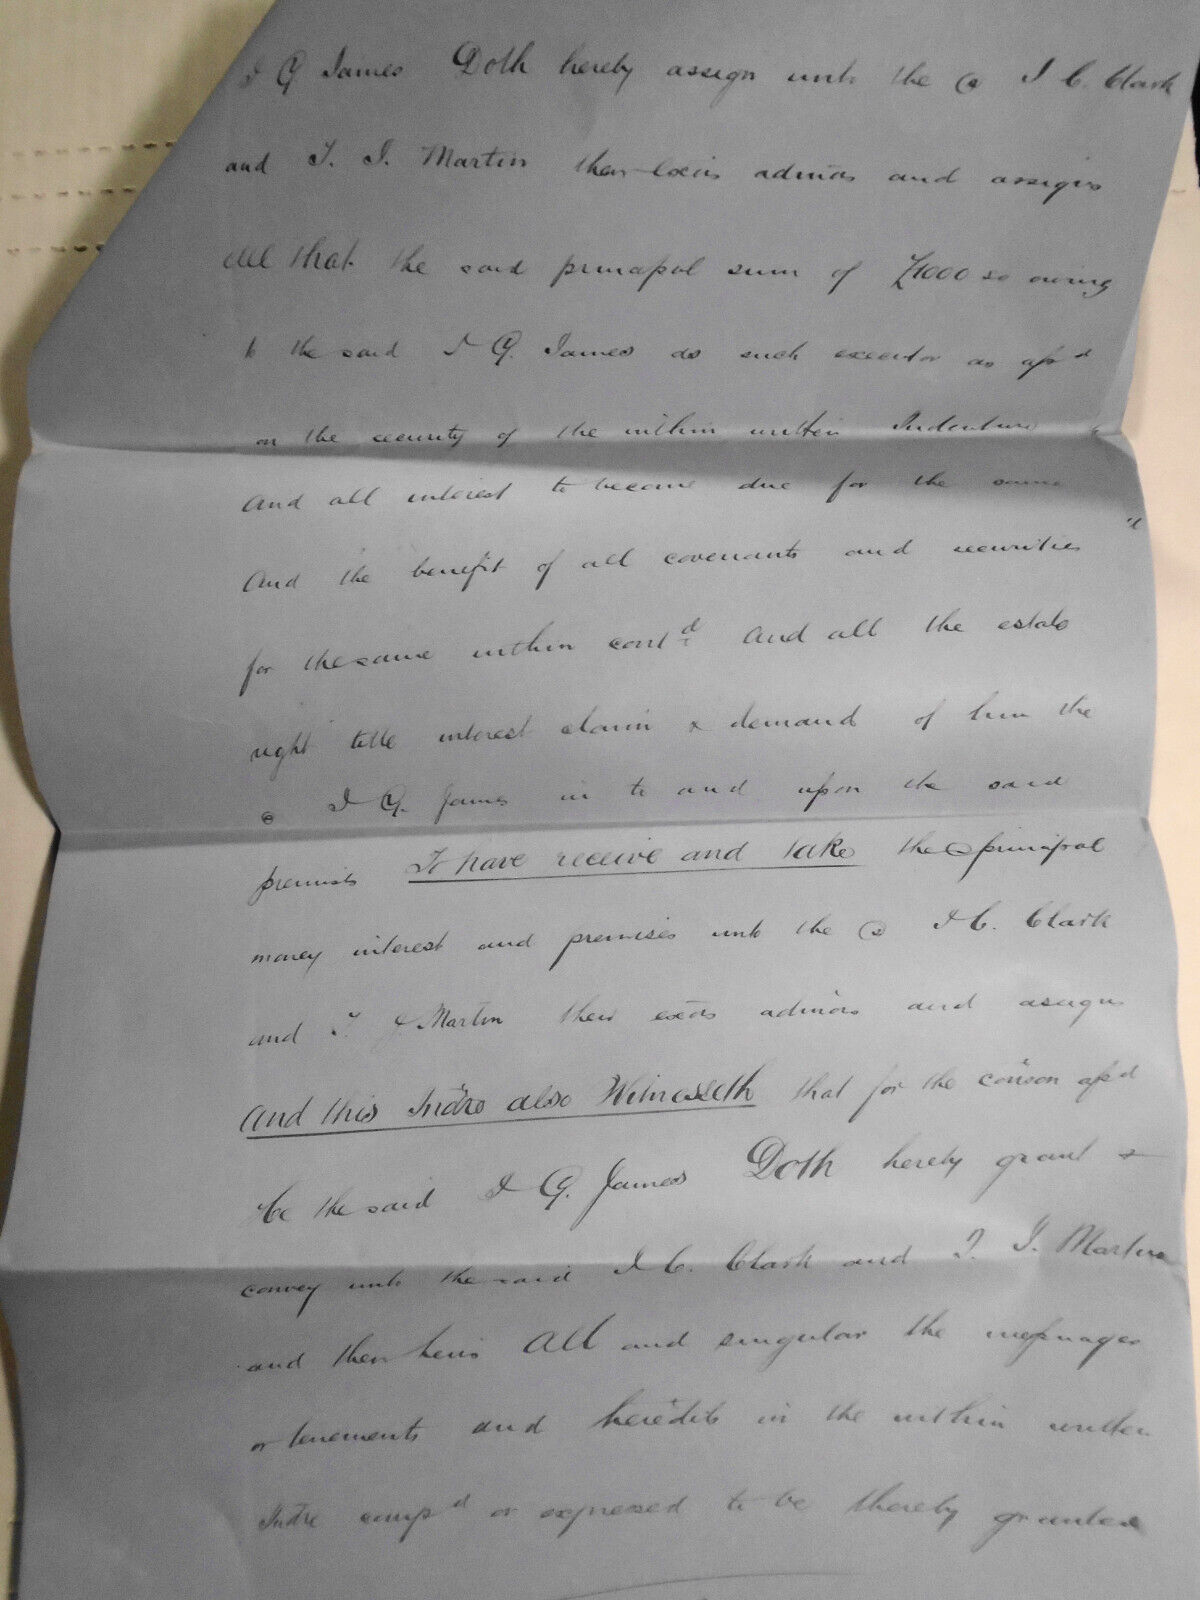 J G James Doth hereby assign unto the (s) J C. Clark
and T. J. Martin their exōrs admōrs and assigns
All that the said principal sum of £1000 so owing
to the said J G. James as such executor as afsd
on the security of the within written Indenture
And all interest to become due for the same
And the benefit of all covenants and securities
for the same within contd And all the estate
right title interest claim & demand of him the
(s) J G. James in to and upon the said
premises To have receive and take the (s) principal
money interest and premises unto the (s) J C. Clark
and T. J Martin their exōrs admōrs and assigns
And this Indre also Witnesseth that for the conson afsd
He the said J G. James Doth hereby grant &
convey unto the said J C. Clark and T. J. Martin
and their heirs All and singular the messuages
or tenements and heredits in the within written
Indre compd or expressed to be thereby granted